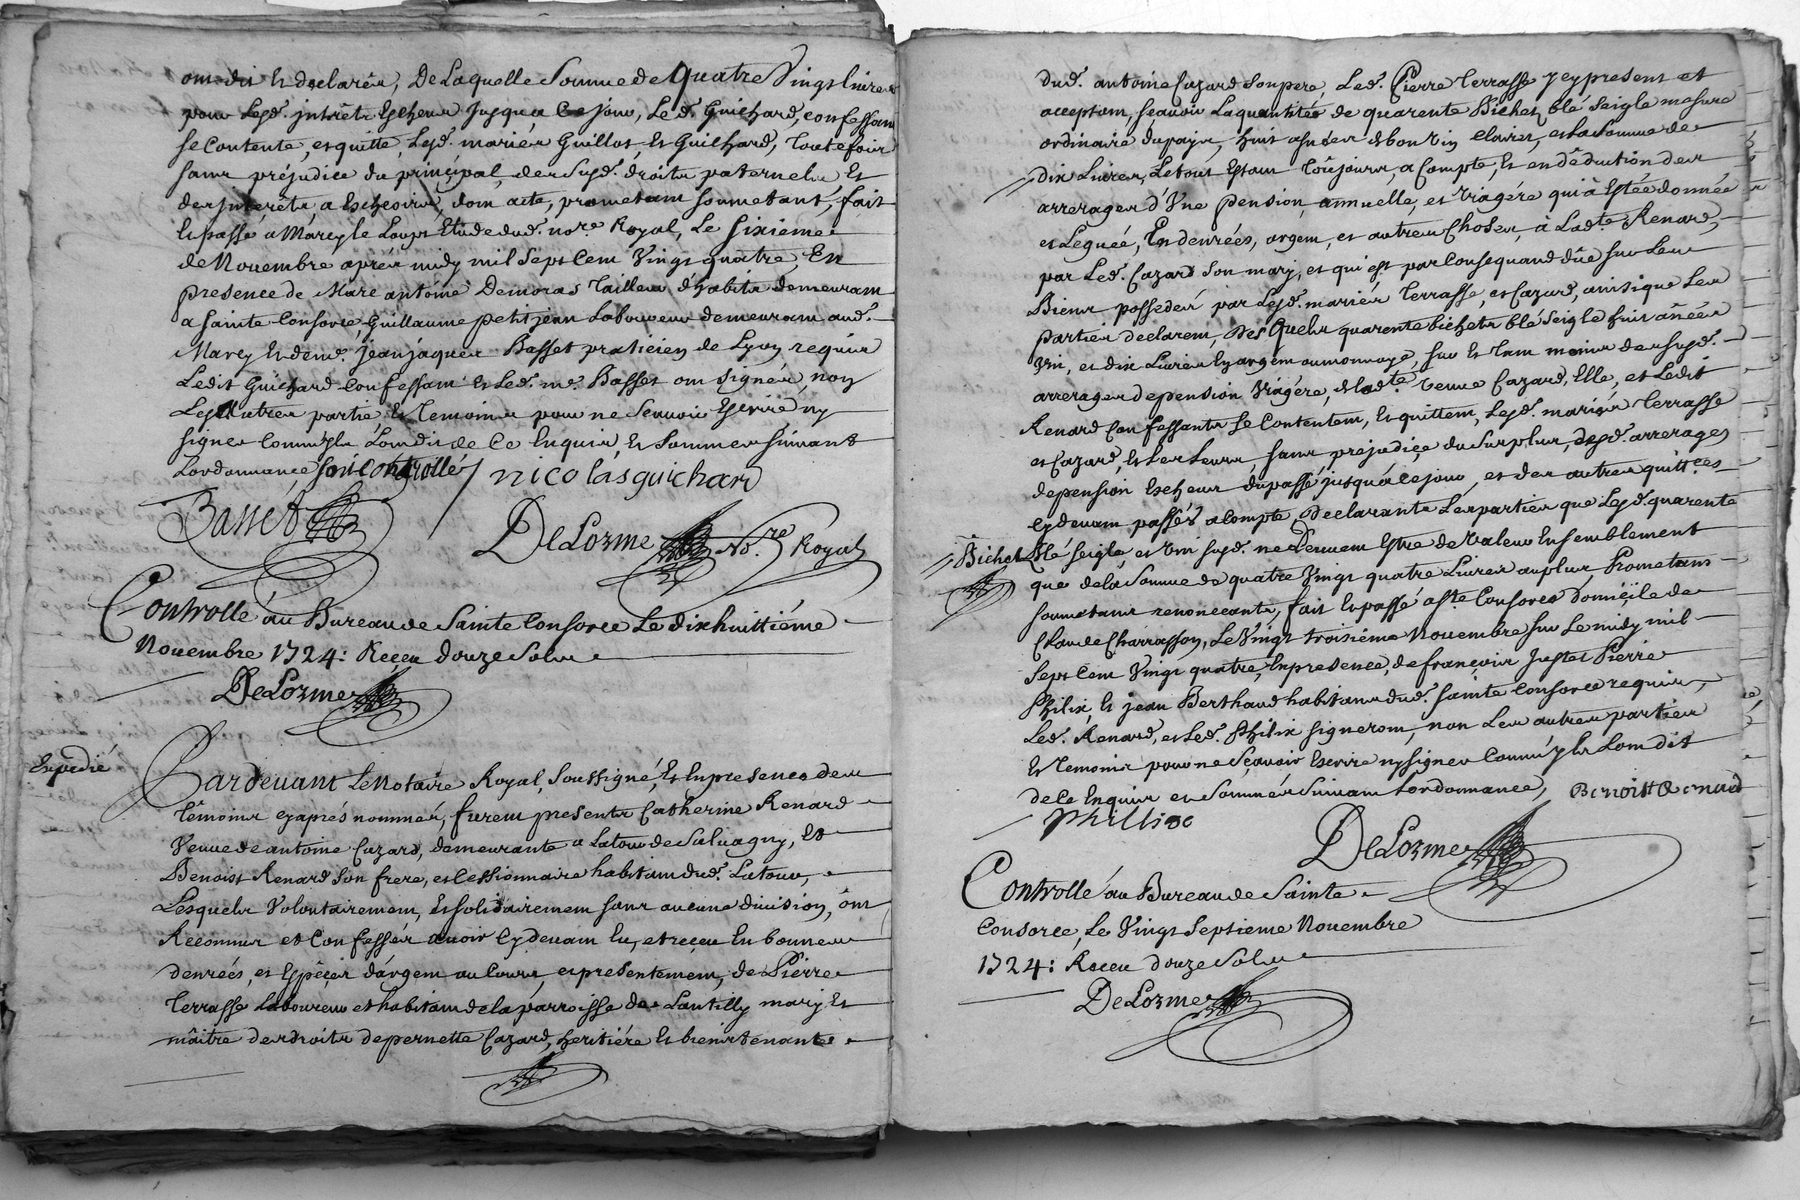 ont dit et declarér, De Laquelle Somme de Quatre Vingt livres
pour Lesd. intrêts Escheux Jusqua Ce Jour, Led. Guichard, confessant
se Contente, et quitte, Lesd. mariér Guillot Et Guichard, Toutefois
sans préjudice du principal, de Susd. droits paternels Et
des Interêts a Escheoire, dont acte, prometant soumetant, fait
Et passé a Marcy le Loups Etude dud. nore Royal, Le sixieme
de Novembre aprés midy mil Sept Cent Vingt quatre, En
presence de Marc antoine Demoras Tailleur d'habits demeurant
a Sainte Consorce, Guillaume petitjean Laboureur demeurant aud.
Marcy Et de me. Jean jaques Basset praticien de Lyon requis
Ledit Guichard Confessant et Led. me. Basset ont signér, non
Les Autres parties Et Temoins pour ne Scavoir Escrire ny
signer Comm'yls L'ont dit de Ce Enquis, Et Sommer suivant
Lordonnance, soit Controllé / nicolas guichard
Basset
DeLorme No.re Royal
Controllé au Bureau de Sainte Consorce Le dixhuittiéme
Novembre 1724: Receu douze Sols
DeLorme
Expedié
Pardevant Le Notaire Royal, Soussigné, Et En presence des
têmoins cyaprés nommés, furent presents Catherine Renard
Veuve de antoine Cazard, demeurante a Latour de Salvagny, Et
Benoist Renard Son frere, et Cessionnaire habitant dud. Latour,
Lesquels Volontairement, Et solidairement sans aucune division, ônt
Reconnus et Confessér avoir Cy devant Eu, et receu En bonnes
denreés, et Espêçes d'argent au Cours, et presentement, de Pierre
Terrasse Laboureur et habitant de la parroisse de Lentilly mary Et
mâitre des droits de pernette Cazard, heritiére Et bientenante
dud. antoine Cazard Son pere, Led. Pierre Terrasse yey present et
acceptant, scavoir La quantité de quarente Bichets blé Seigle mesure
ordinaire du pays, huit asnées de bon vin clairet, et La Somme de
Dix Livres, Le tout Estant Toûjours, a Compte, Et en dêduction des
arrerages d'Une pension, annuelle, et Viagére qui à Estée donnée
et Leguée, En denrées, argent, et autres Choses, à Lad.te Renard,
par Led. Cazard Son mary, et qui est par Consequand dûe sur Les
Biens possedér par Lesd. mariér Terrasse et Cazard, ainsique Les
parties declarent, Des Quels quarente bichets blé Seigle huit ânées
Vin, et dix Livres En argent oumonnoye, sur Et Tant moins des susd.
arrerages de pension Viagére, lad.te Veuve Cazard, Elle, et Ledit
Renard Confessants Se Contentent, Et quittent, Lesd. mariér Terrasse
et Cazard, Et Les Leurs, sans prejudice du Surplus, desd. arrerages
de pension Escheux du passé jusqu'à Ce jour, et des autres quitt.ces
Cy devant passéz a Compte, Declarants Les parties que Lesd. quarente
// Bichets blé Seigle, et vin susd. ne peuvent Estre de Valeur Ensemblement
que de la Somme de quatre Vingt quatre Livres au plus, Prometans
soumetans renonceants, fait Et passé a Ste. Consorce Domiçile de
Claude Charrasson, Le Vingt troisiéme Novembre sur Le midy mil
Sept Cent Vingt quatre, En presence, de françois Juste Pierre
Philix, Et jean Berthaud habitans dud. Sainte Consorce requis,
Led. Renard, et Led. Philix signeront, non Les autres parties
Et Temoins pour ne Sçavoir Escrire ny signer Comm'yls Lont dit
de Ce Enquis et Sommér Suivant Lordonnance, Benoist Renard
Phillixe
DeLorme
Controllé au Bureau de Sainte
Consorce, Le Vingt Septieme Novembre
1724: Receu douze Sols
DeLorme